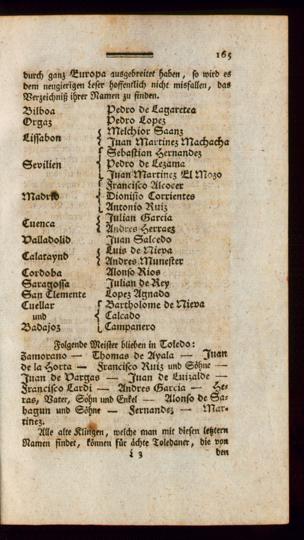 165
durch ganz Europa ausgebreitet haben, so wird es
dem neugierigen Leser hoffentlich nicht misfallen, das
Verzeichniß ihrer Namen zu finden.
Bilboa Pedro de Lagaretea
Orgaz Pedro Lopez
Lissabon { Melchior Saanz
Juan Martinez Machacha
Sevilien { Sebastian Hernandez
Pedro de Lezama
Juan Martinez El Mozo
Madrid { Francisco Alcocer
Dionisio Corrientes
Antonio Ruiz
Cuenca { Julian Garcia
Andres Herraez
Valladolid Juan Salcedo
Calataynd { Luis de Nieva
Andres Munester
Cordoba Alonso Rios
Saragossa Julian de Rey
San Clemente Lopez Agnado
Cuellar { Bartholome de Nieva
und Calcado
Badajoz Campanero
Folgende Meister blieben in Toledo:
Zamorano — Thomas de Ayala — Juan
de la Horta — Francisco Ruiz und Söhne —
Juan de Vargas — Juan de Luizalde —
Francisco Lardi — Andres Garcia — He-
ras, Vater, Sohn und Enkel — Alonso de Sa-
hagun und Söhne — Fernandez — Mar-
tinez.
Alle alte Klingen, welche man mit diesen letztern
Namen findet, können für ächte Toledaner, die von
L 3 den